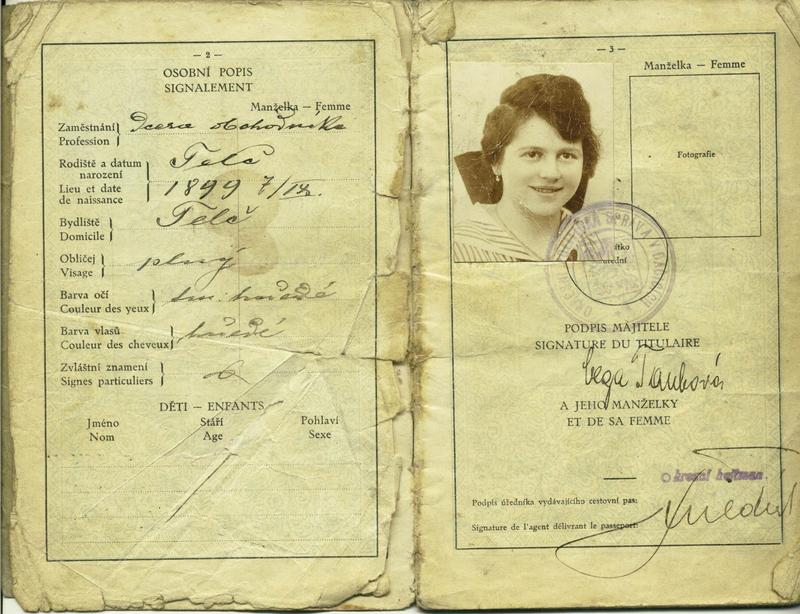 — 2 —
OSOBNÍ POPIS
SIGNALEMENT
Manželka — Femme
Zaměstnání
Profession
Dcera obchodníka
Rodiště a datum
narození
Lieu et date
de naissance
Telč
1899 7/IX.
Bydliště
Domicile
Telč
Obličej
Visage
plný
Barva očí
Couleur des yeux
tm. hnědé
Barva vlasů
Couleur des cheveux
hnědé
Zvláštní znamení
Signes particuliers
DĚTI — ENFANTS
Jméno Stáří Pohlaví
Nom Age Sexe
— 3 —
Manželka — Femme
Fotografie
PODPIS MAJITELE
SIGNATURE DU TITULAIRE
Taubová
A JEHO MANŽELKY
ET DE SA FEMME
Okresní hejtman.
Podpis úředníka vydávajícího cestovní pas:
Signature de l'agent délivrant le passeport: